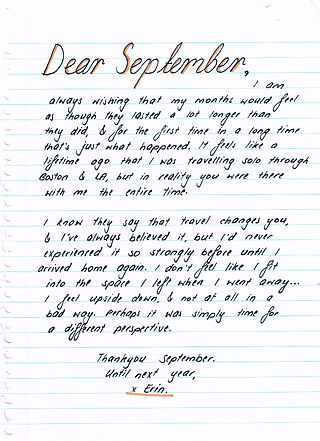 Dear September,
I am
always wishing that my months would feel
as though they lasted a lot longer than
they did, & for the first time in a long time
that's just what happened. It feels like a
lifetime ago that I was travelling solo through
Boston & LA, but in reality you were there
with me the entire time.
I know they say that travel changes you,
& I've always believed it, but I'd never
experienced it so strongly before until I
arrived home again. I don't feel like I fit
into the space I left when I went away...
I feel upside down, & not at all in a
bad way. Perhaps it was simply time for
a different perspective.
Thankyou September.
Until next year,
x Erin.